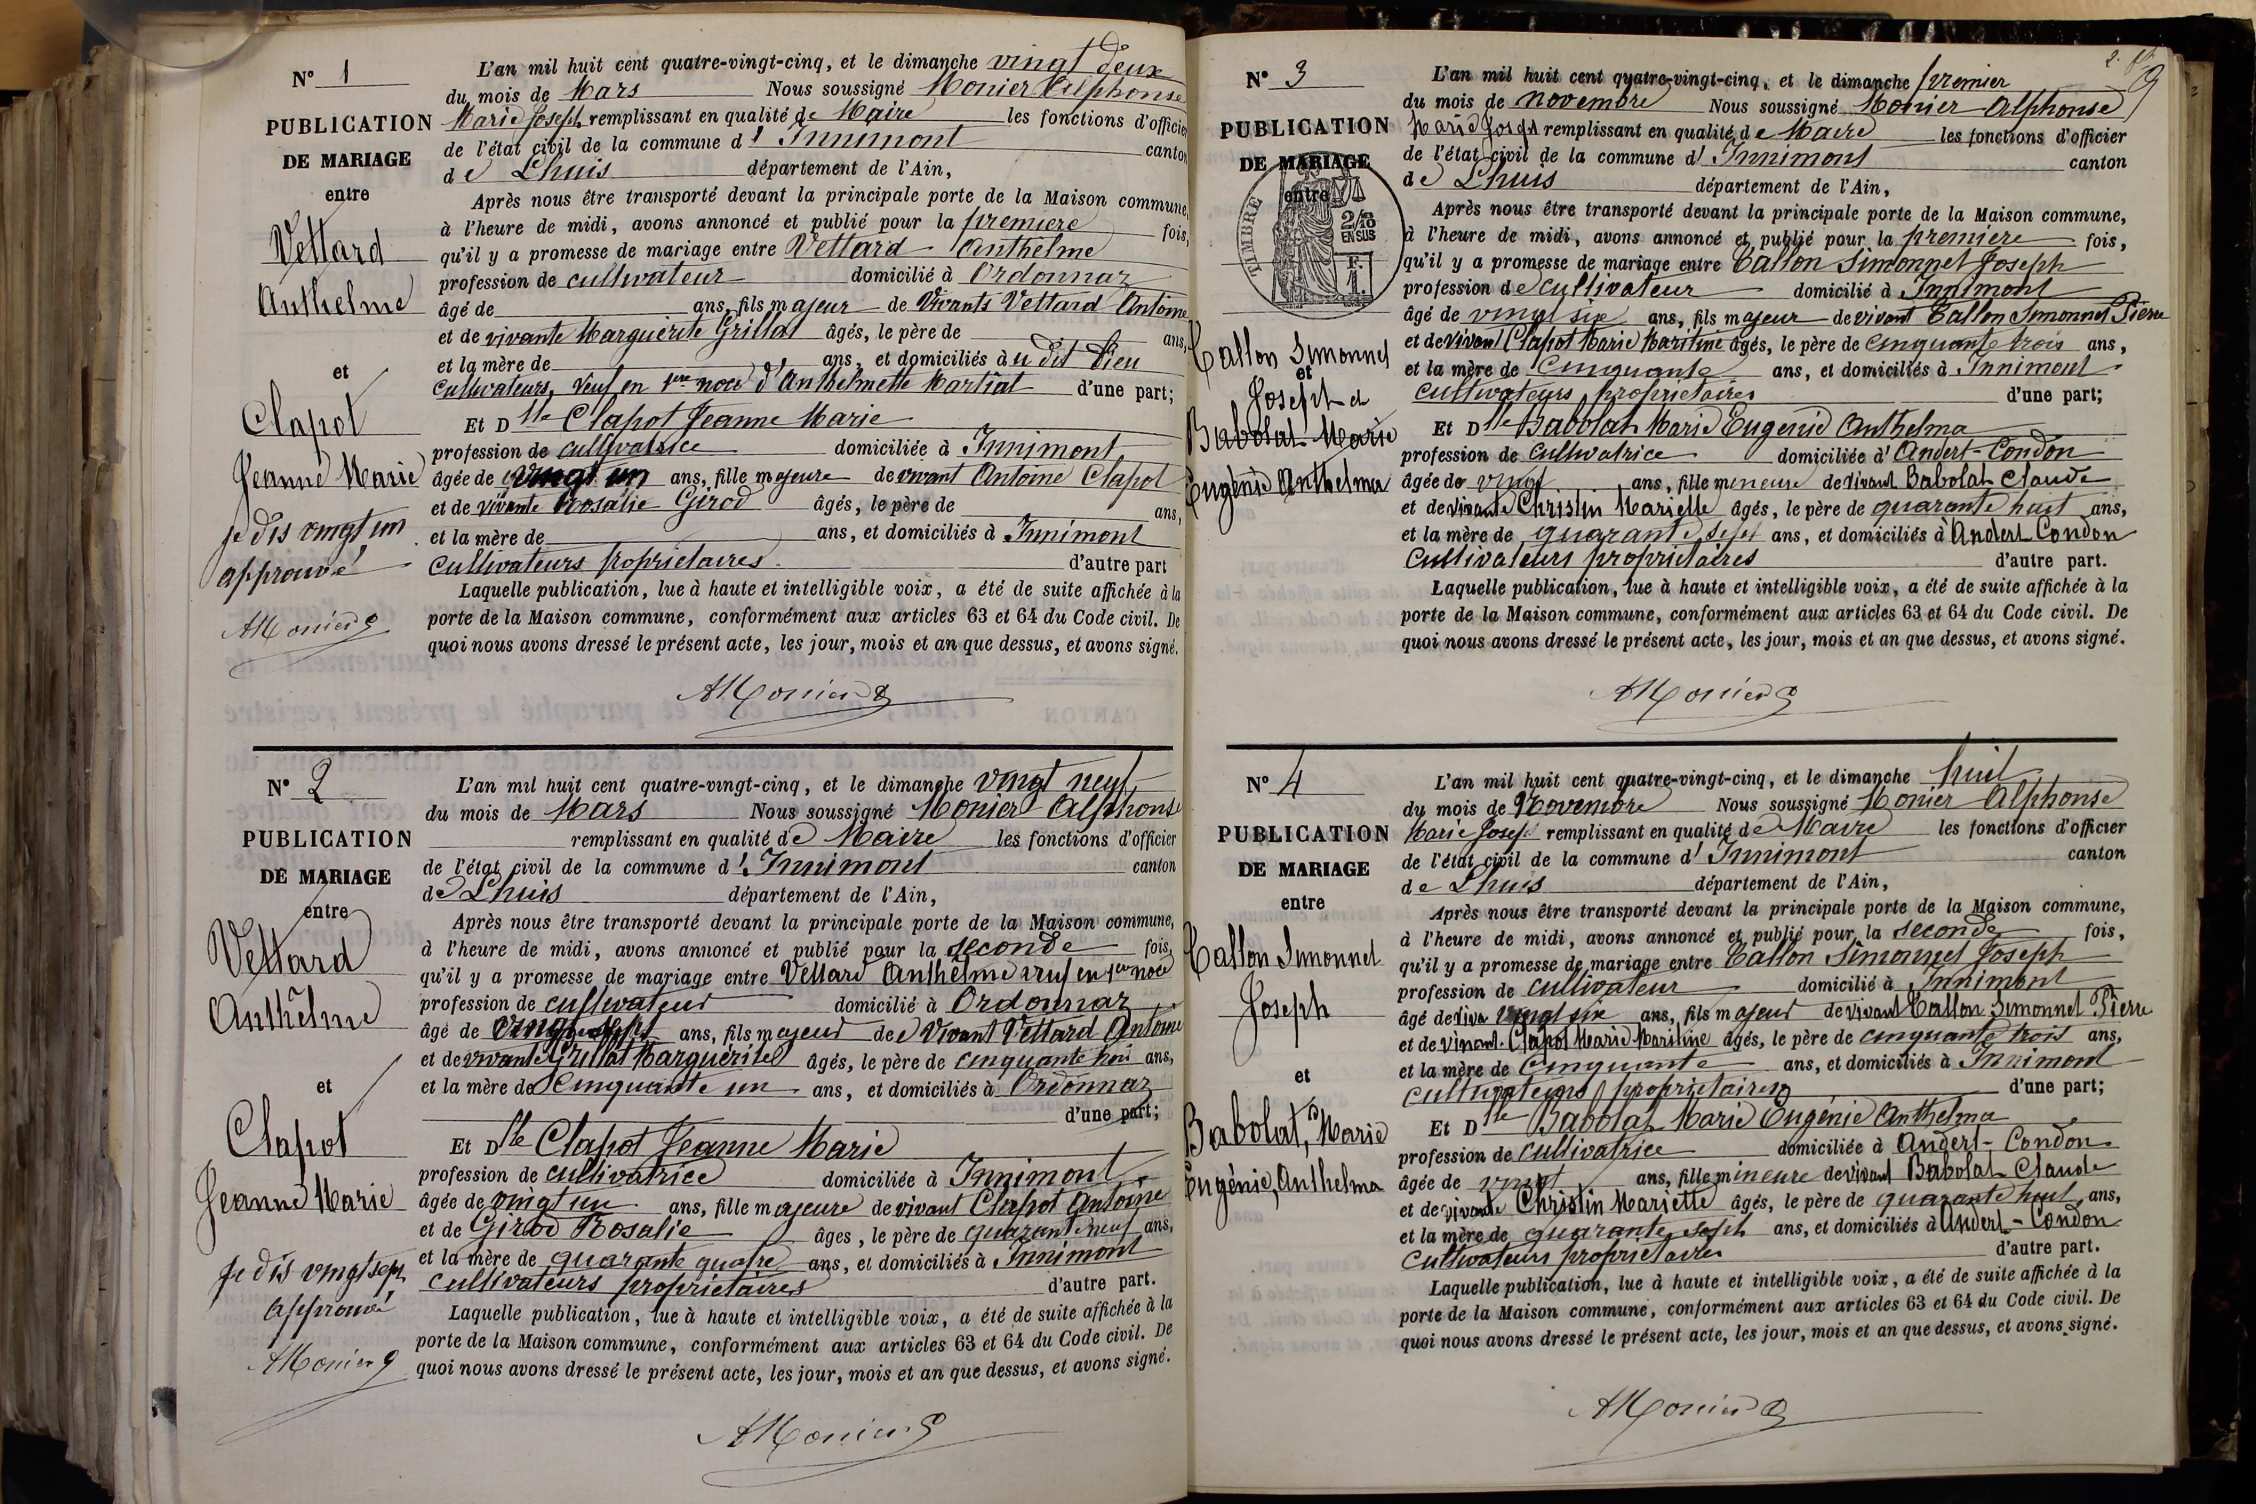 N° 1
PUBLICATION
DE MARIAGE
entre
Vettard
Anthelme
et
Clapot
Jeanne Marie
je dis vingt un
approuvé
AMonier
L'an mil huit cent quatre-vingt-cinq, et le dimanche vingt deux
du mois de Mars Nous soussigné Monier Alphonse
Marie Joseph remplissant en qualité de Maire les fonctions d'officier
de l'état civil de la commune d' Innimont canton
de Lhuis département de l'Ain,
Après nous être transporté devant la principale porte de la Maison commune,
à l'heure de midi, avons annoncé et publié pour la premiere fois,
qu'il y a promesse de mariage entre Vettard Anthelme
profession de cultivateur domicilié à Ordonnaz
âgé de ans, fils majeur de vivants Vettard Antoine
et de vivante Marguerite Grillat âgés, le père de ans,
et la mère de ans, et domiciliés à u dit lieu
cultivateurs, veuf en 1ere noce d'Anthelmette Martial d'une part;
Et Dlle Clapot Jeanne Marie
profession de cultivatrice domiciliée à Innimont
âgée de vingt un ans, fille majeure de vivant Antoine Clapot
et de vivante Rosalie Girod âgés, le père de ans,
et la mère de ans, et domiciliés à Innimont
cultivateurs proprietaires d'autre part
Laquelle publication, lue à haute et intelligible voix, a été de suite affichée à la
porte de la Maison commune, conformément aux articles 63 et 64 du Code civil. De
quoi nous avons dressé le présent acte, les jour, mois et an que dessus, et avons signé.
AMonier
N° 2
PUBLICATION
DE MARIAGE
entre
Vettard
Anthelme
et
Clapot
Jeanne Marie
je dis vingt sept
approuvé
AMonier
L'an mil huit cent quatre-vingt-cinq, et le dimanche vingt neuf
du mois de Mars Nous soussigné Monier Alphonse
remplissant en qualité de Maire les fonctions d'officier
de l'état civil de la commune d' Innimont canton
de Lhuis département de l'Ain,
Après nous être transporté devant la principale porte de la Maison commune,
à l'heure de midi, avons annoncé et publié pour la seconde fois,
qu'il y a promesse de mariage entre Vettard Anthelme veuf en 1ere noce
profession de cultivateur domicilié à Ordonnaz
âgé de vingt sept ans, fils majeur de vivant Vettard Antoine
et de vivante Grillat Marguérite âgés, le père de cinquante ans,
et la mère de cinquante un ans, et domiciliés à Ordonnaz
d'une part;
Et Dlle Clapot Jeanne Marie
profession de cultivatrice domiciliée à Innimont
âgée de vingt un ans, fille majeure de vivant Clapot Antoine
et de Girod Rosalie âges, le père de quarante neuf ans,
et la mère de quarante quatre ans, et domiciliés à Innimont
cultivateurs proprietaires d'autre part.
Laquelle publication, lue à haute et intelligible voix, a été de suite affichée à la
porte de la Maison commune, conformément aux articles 63 et 64 du Code civil. De
quoi nous avons dressé le présent acte, les jour, mois et an que dessus, et avons signé.
AMonier
2.
N° 3
PUBLICATION
DE MARIAGE
entre
TIMBRE
2/10
EN SUS
F.
1.
Tallon Simonnet
et
Joseph et
Babolat Marie
Eugénie Anthelma
L'an mil huit cent quatre-vingt-cinq, et le dimanche premier
du mois de novembre Nous soussigné Monier Alphonse
Marie Joseph remplissant en qualité de Maire les fonctions d'officier
de l'état civil de la commune d' Innimont canton
de Lhuis département de l'Ain,
Après nous être transporté devant la principale porte de la Maison commune,
à l'heure de midi, avons annoncé et publié pour la premiere fois,
qu'il y a promesse de mariage entre Tallon Simonnet Joseph
profession de cultivateur domicilié à Innimont
âgé de vingt six ans, fils majeur de vivant Tallon Simonnet Pierre
et de vivant Clapot Marie Maritine âgés, le père de cinquante trois ans,
et la mère de cinquante ans, et domiciliés à Innimont
cultivateurs proprietaires d'une part;
Et Dlle Babolat Marie Eugenie Anthelma
profession de cultivatrice domiciliée à Andert-Condon
âgée de vingt ans, fille mineure de vivant Babolat Claude
et de vivante Christin Mariette âgés, le père de quarante huit ans,
et la mère de quarante sept ans, et domiciliés à Andert Condon
cultivateurs proprietaires d'autre part.
Laquelle publication, lue à haute et intelligible voix, a été de suite affichée à la
porte de la Maison commune, conformément aux articles 63 et 64 du Code civil. De
quoi nous avons dressé le présent acte, les jour, mois et an que dessus, et avons signé.
AMonier
N° 4
PUBLICATION
DE MARIAGE
entre
Tallon Simonnet
Joseph
et
Babolat, Marie
Eugénie, Anthelma
L'an mil huit cent quatre-vingt-cinq, et le dimanche huit
du mois de Novembre Nous soussigné Monier Alphonse
Marie Josep remplissant en qualité de Maire les fonctions d'officier
de l'état civil de la commune d' Innimont canton
de Lhuis département de l'Ain,
Après nous être transporté devant la principale porte de la Maison commune,
à l'heure de midi, avons annoncé et publié pour la seconde fois,
qu'il y a promesse de mariage entre Tallon Simonnet Joseph
profession de cultivateur domicilié à Innimont
âgé de vingt six ans, fils majeur de vivant Tallon Simonnet Pierre
et de vivant Clapot Marie Maritine âgés, le père de cinquante trois ans,
et la mère de cinquante ans, et domiciliés à Innimont
cultivateurs proprietaires d'une part;
Et Dlle Babolat Marie Eugénie Anthelma
profession de cultivatrice domiciliée à Andert-Condon
âgée de vingt ans, fille mineure de vivant Babolat Claude
et de vivante Christin Mariette âgés, le père de quarante huit ans,
et la mère de quarante sept ans, et domiciliés à Andert-Condon
cultivateurs proprietaires d'autre part.
Laquelle publication, lue à haute et intelligible voix, a été de suite affichée à la
porte de la Maison commune, conformément aux articles 63 et 64 du Code civil. De
quoi nous avons dressé le présent acte, les jour, mois et an que dessus, et avons signé.
AMonier